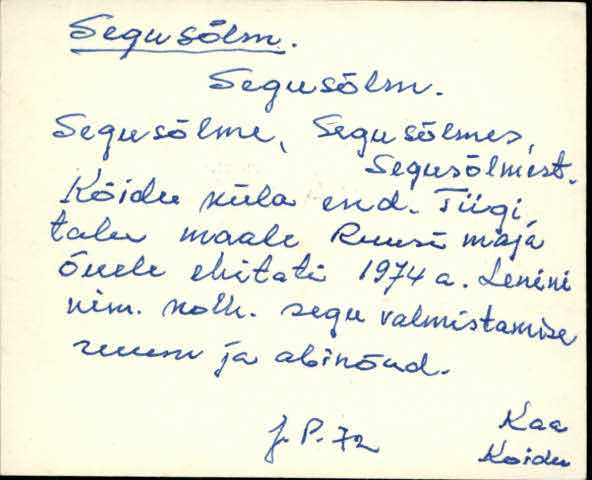 Segusõlm.
Segusõlm.
Segusõlme, Segusõlmes,
Segusõlmest.
Kõidu küla end. Tiigi
talu maale Ruusi maja
õuele ehitati 1974 a. Lenini
nim. kolh. segu valmistamise
ruum ja abinõud.
J. P. 72
Kaa
Kõidu